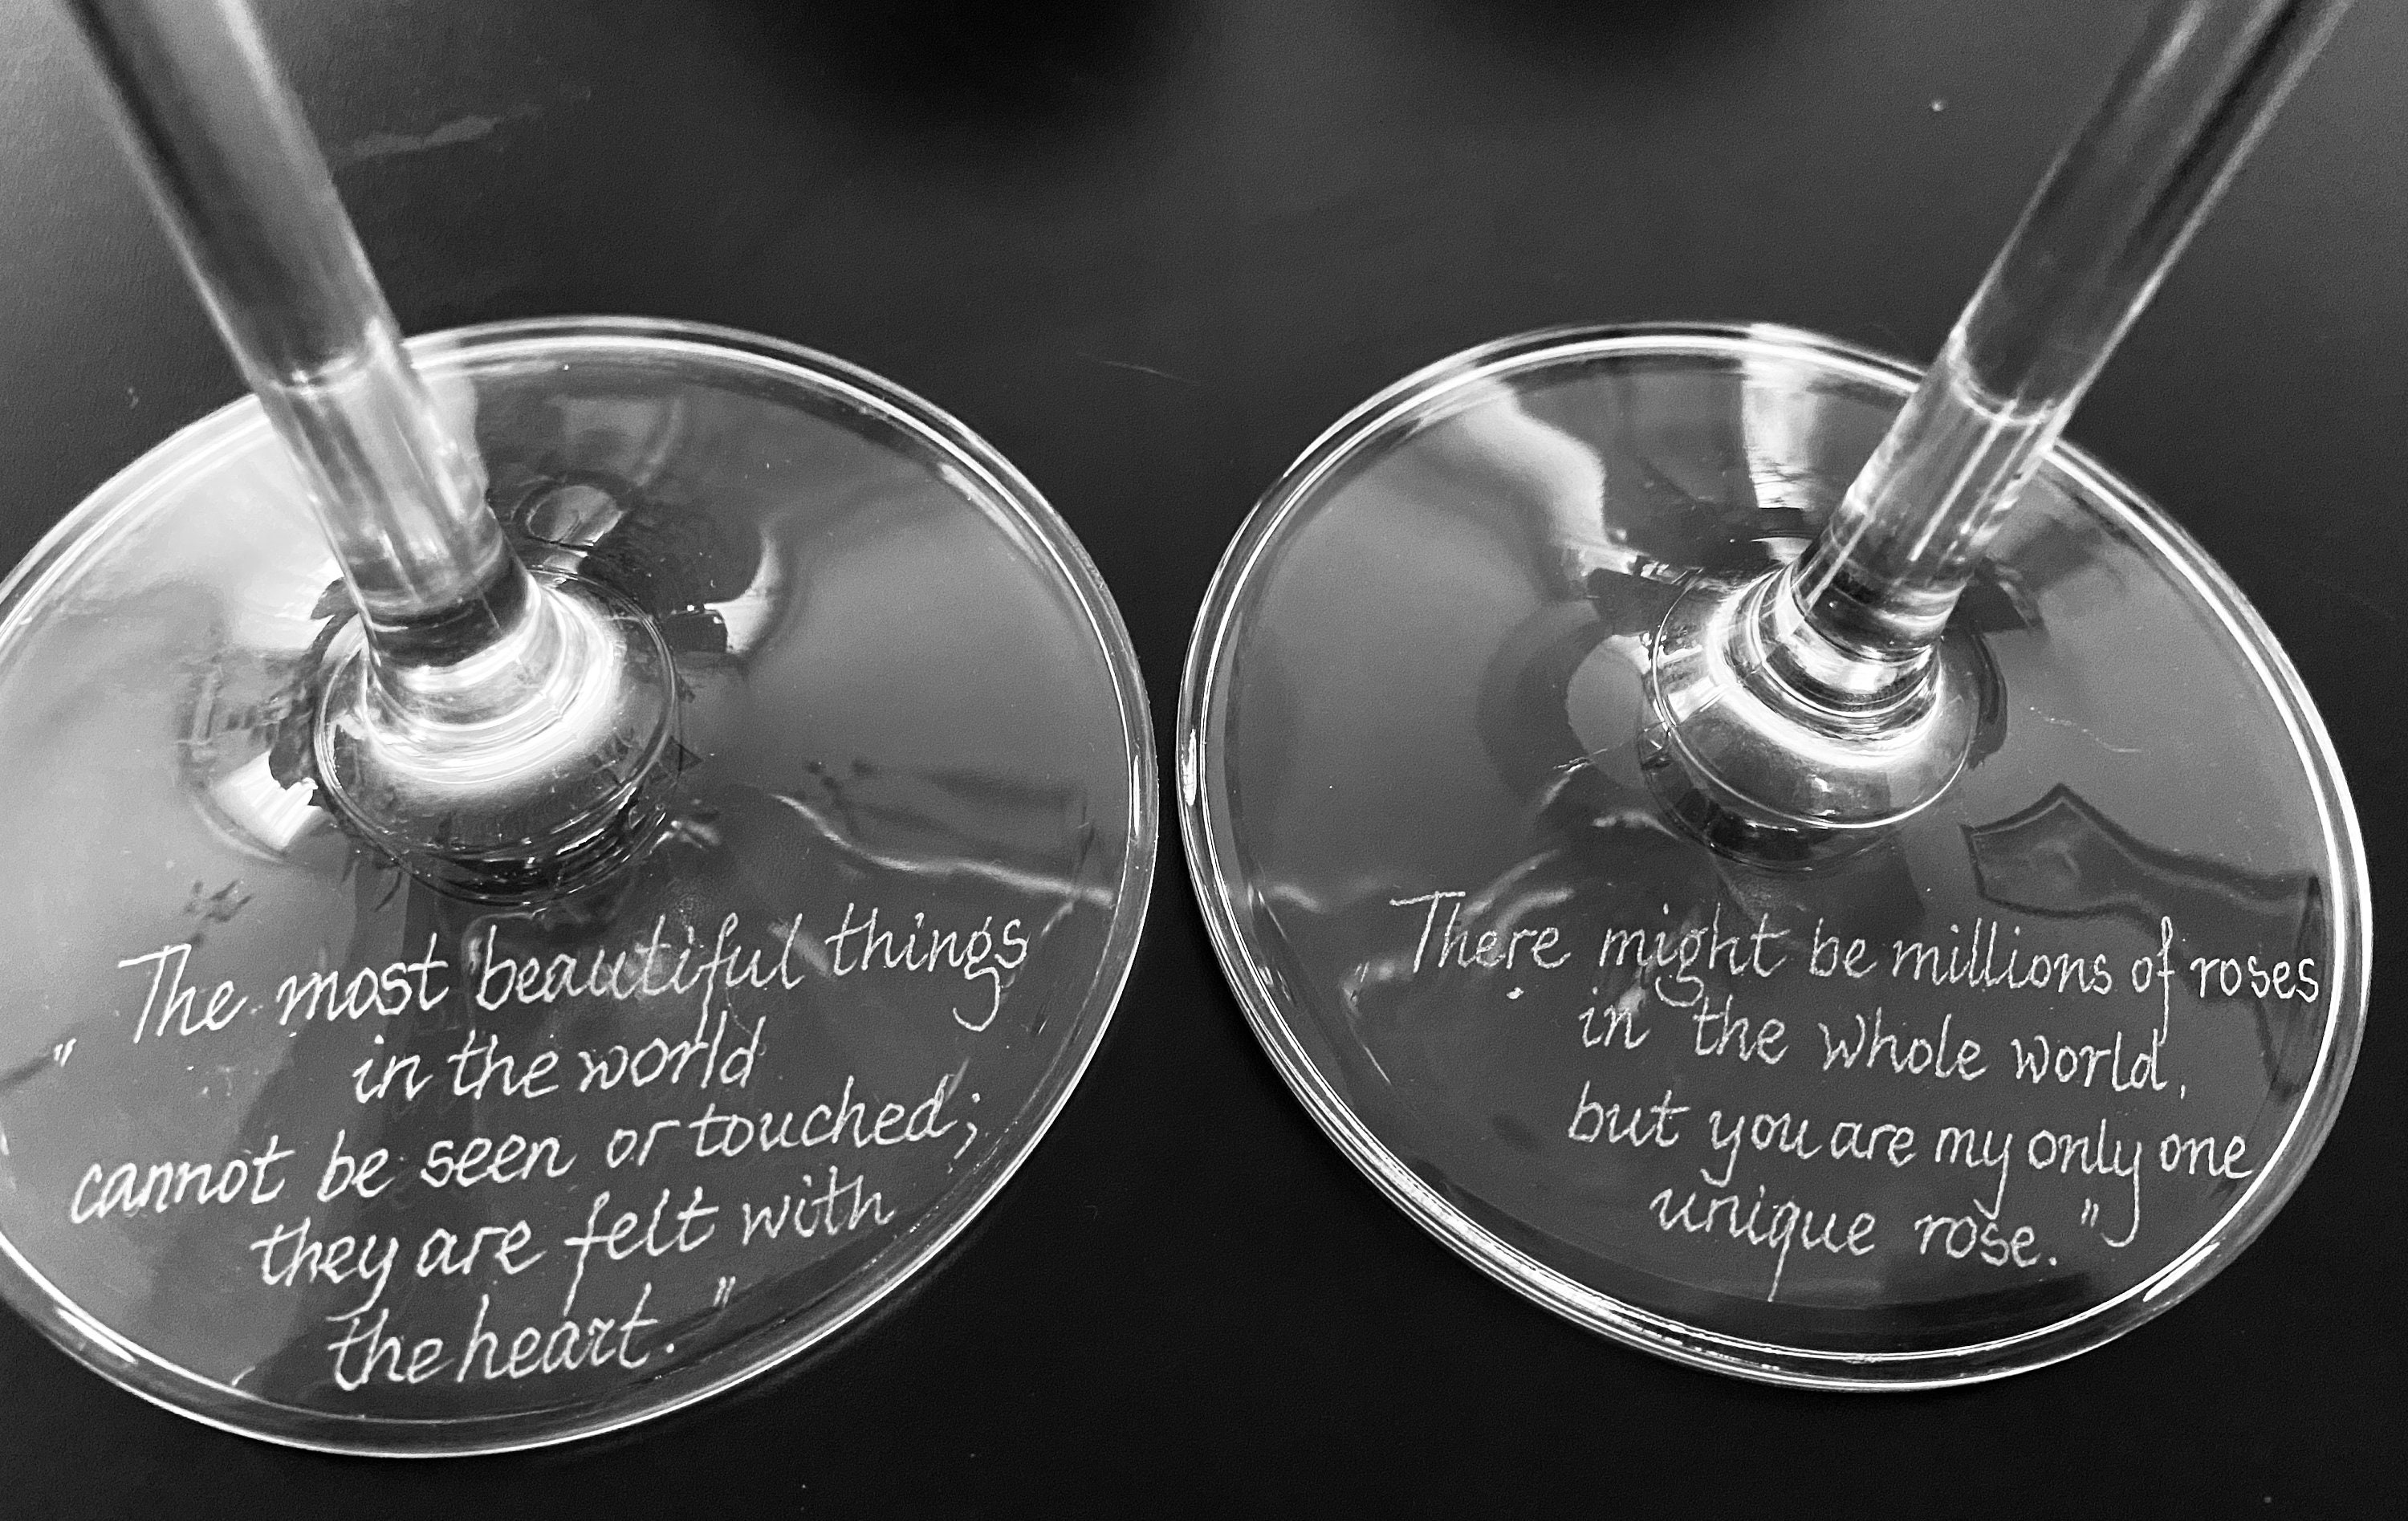 "The most beautiful things
in the world
cannot be seen or touched;
they are felt with
the heart."
"There might be millions of roses
in the whole world,
but you are my only one
unique rose."